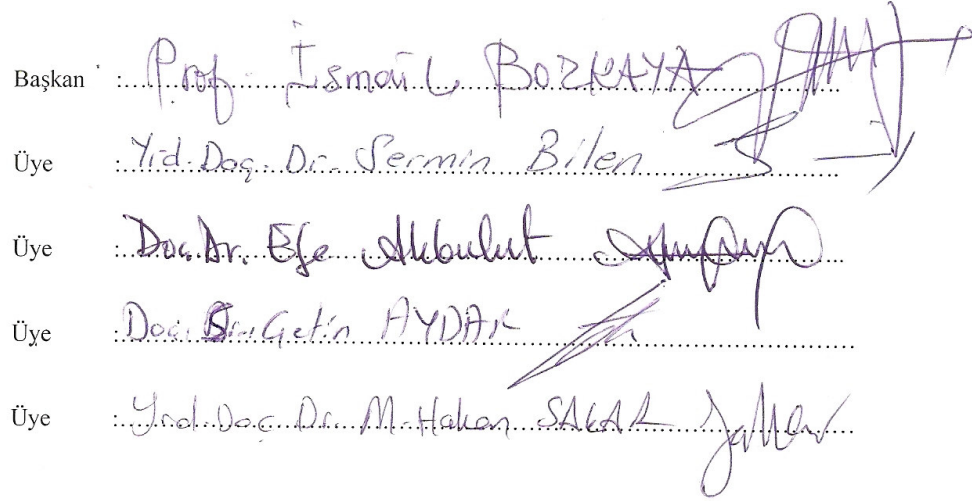 Başkan : Prof. İsmail BOZKAYA
Üye : Yrd. Doç. Dr. Sermin Bilen
Üye : Doç. Dr. Efe Akbulut
Üye : Doç. Dr. Çetin AYDAR
Üye : Yrd. Doç. Dr. M. Hakan SAKAR